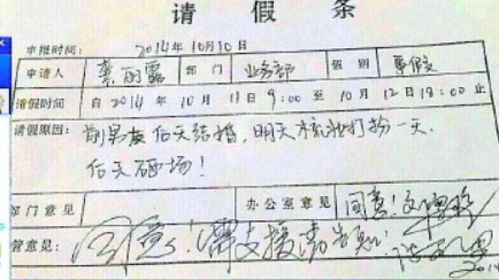 请假条
申报时间： 2014年10月10日
申请人 龚丽露 部门 业务部 假别 事假
请假时间 自2014年10月11日9:00至10月12日18:00止
请假原因： 前男友后天结婚，明天梳妆打扮一天.
后天砸场！
部门意见 办公室意见 同意！
管意见: 同意！需支援请告知！